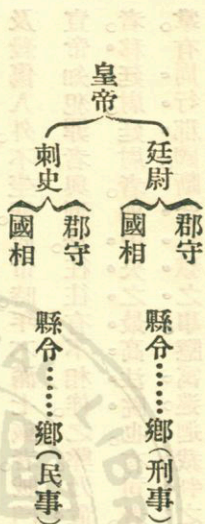 皇帝
廷尉
郡守
國相
縣令……鄉(刑事)
刺史
郡守
國相
縣令……鄉(民事)